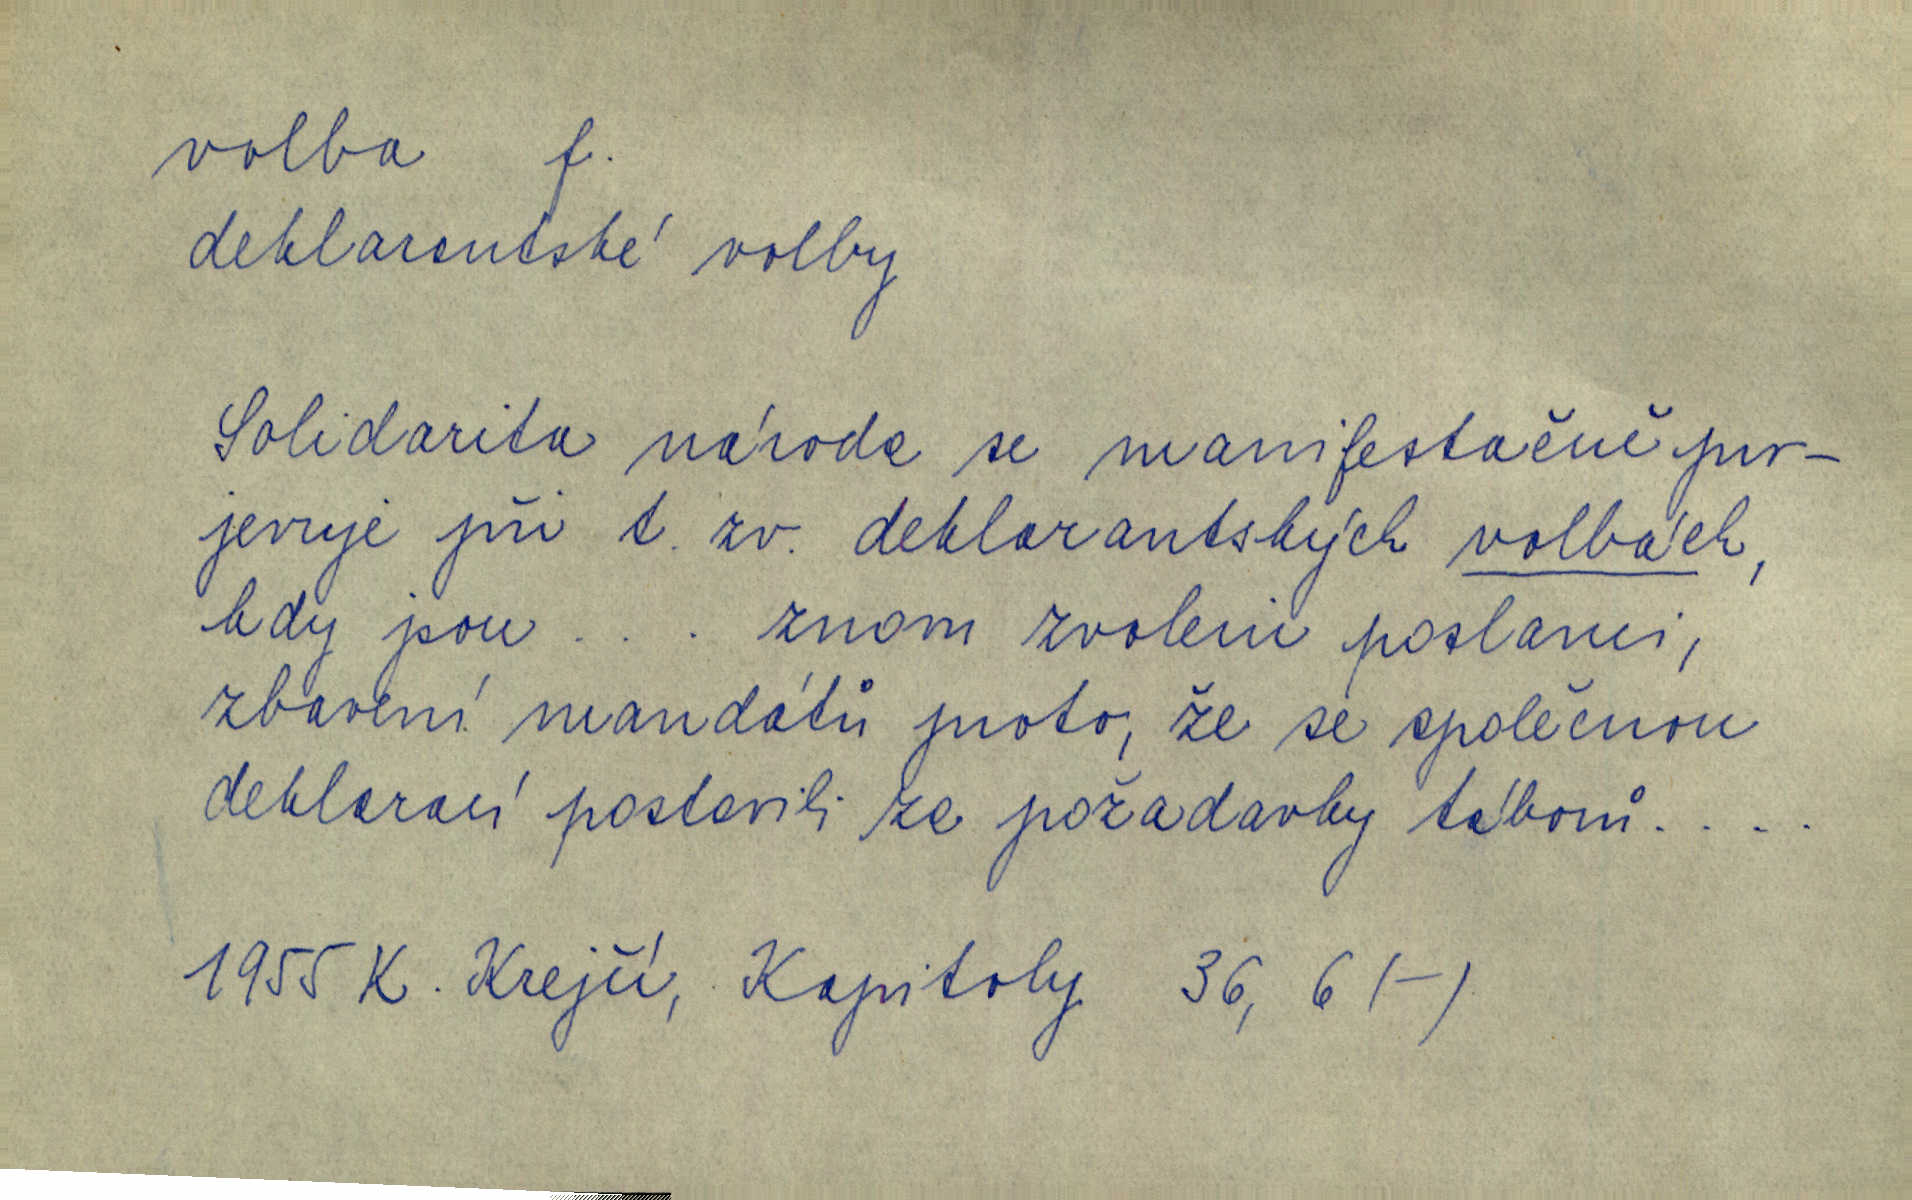 volba f.
deklarantské volby
Solidarita národa se manifestačně pro-
jevuje při t. zv. deklarantských volbách,
kdy jsou . . . znovu zvoleni poslanci,
zbavení mandátů proto, že se společnou
deklarací postavili za požadavky táborů. . . .
1955 K. Krejčí, Kapitoly 36, 6 (-)